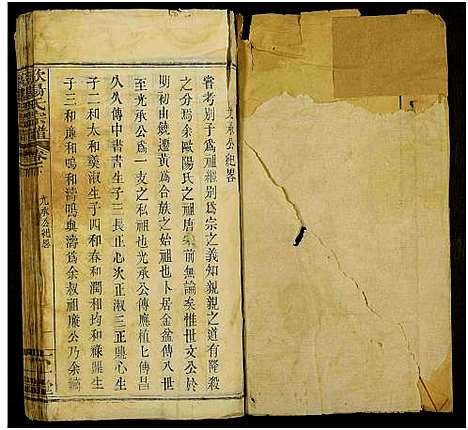 光承公紀畧
嘗考别子為祖繼别為宗之義知親親之道有隆殺
之分焉余歐陽氏之祖唐宗前無論矣惟世文公於
明初由饒遷黄為合族之始祖也卜居金盆傳八世
至光承公為一支之私祖也光承公傳應植七傳昌
久久傳中書書生子三長正心次正淑三正題心生
子二和太和奠淑生子四和春和潤和均和祿題生
子三和廉和鳴和濤鳴與濤為余叔祖廉公乃余
歐陽氏宗譜
卷
光承公紀畧
一
堂